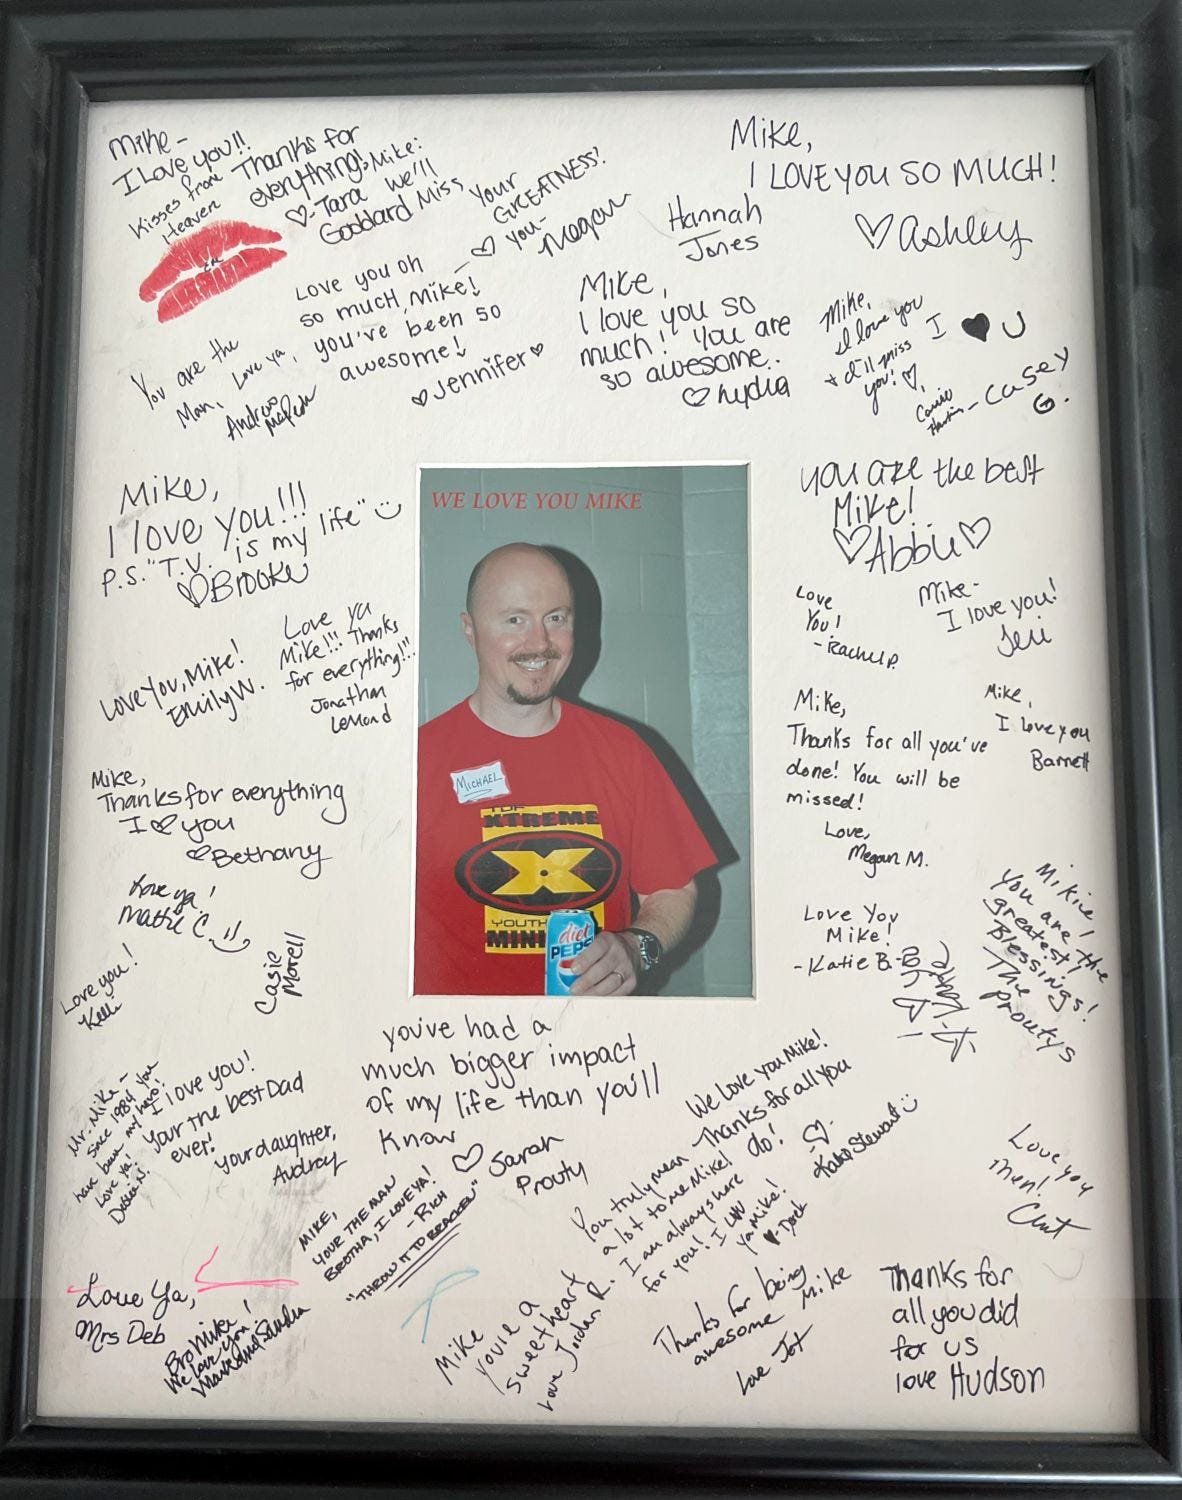 Mike -
I Love you!!
Kisses from
Heaven
Thanks for
everything!
♡-Tara
Goddard
Mike:
we'll
Miss
Your
GREATNESS!
♡ you-
Megan
Hannah
Jones
Mike,
I LOVE YOU SO MUCH!
♡ Ashley
Love you oh
so much, Mike!
you've been so
awesome!
♡ Jennifer ♡
Mike,
I love you so
much! You are
so awesome.
♡ Lydia
Mike,
I love you
+ I'll miss
you! ♡,
I ♥ U
- Casey
G.
You are the
Man,
Love ya,
Andrew
Mike,
I love you!!!
P.S. "T.V. is my life" :)
♡ Brooke
WE LOVE YOU MIKE
you are the best
Mike!
♡ Abbie ♡
Love
You!
- Rachel P.
Mike -
I love you!
Jeri
Love You, Mike!
Emily W.
Love ya
Mike!!! Thanks
for everything!!!
Jonathan
LeMond
Mike,
Thanks for all you've
done! You will be
missed!
Love,
Megan M.
Mike,
I love you
Barnett
MICHAEL
XTREME
X
YOUTH
MINI
diet
PEPSI
Mike,
Thanks for everything
I ♡ you
♡ Bethany
Love ya!
Mattie C. :)
Casie
Morell
Love you!
Kelli
Love You
Mike!
- Katie B.
Mike!
You are the
greatest!
Blessings!
The
Proutys
you've had a
much bigger impact
of my life than you'll
know
♡ Sarah
Prouty
Mr. Mike -
since 1984 you
have been my hero!
Love ya!
I love you!
Your the best Dad
ever!
your daughter,
Audrey
MIKE,
YOUR THE MAN
BROTHA, I LOVE YA!
- RICH
"THROW IT TO BRACKEN"
We love you Mike!
Thanks for all you
do!
-♡-
Kate Stewart :)
You truly mean
a lot to me Mike!
I am always here
for you! I LUV
ya Mike!
♥ -Derek
Love you
Men!
Clint
Love Ya,
Mrs Deb
Bro Mike!
We love you!
Mark and Sandra
Mike
you're a
sweetheart
Love Jordan R.
Thanks for being
awesome Mike
Love Jot
Thanks for
all you did
for us
love Hudson